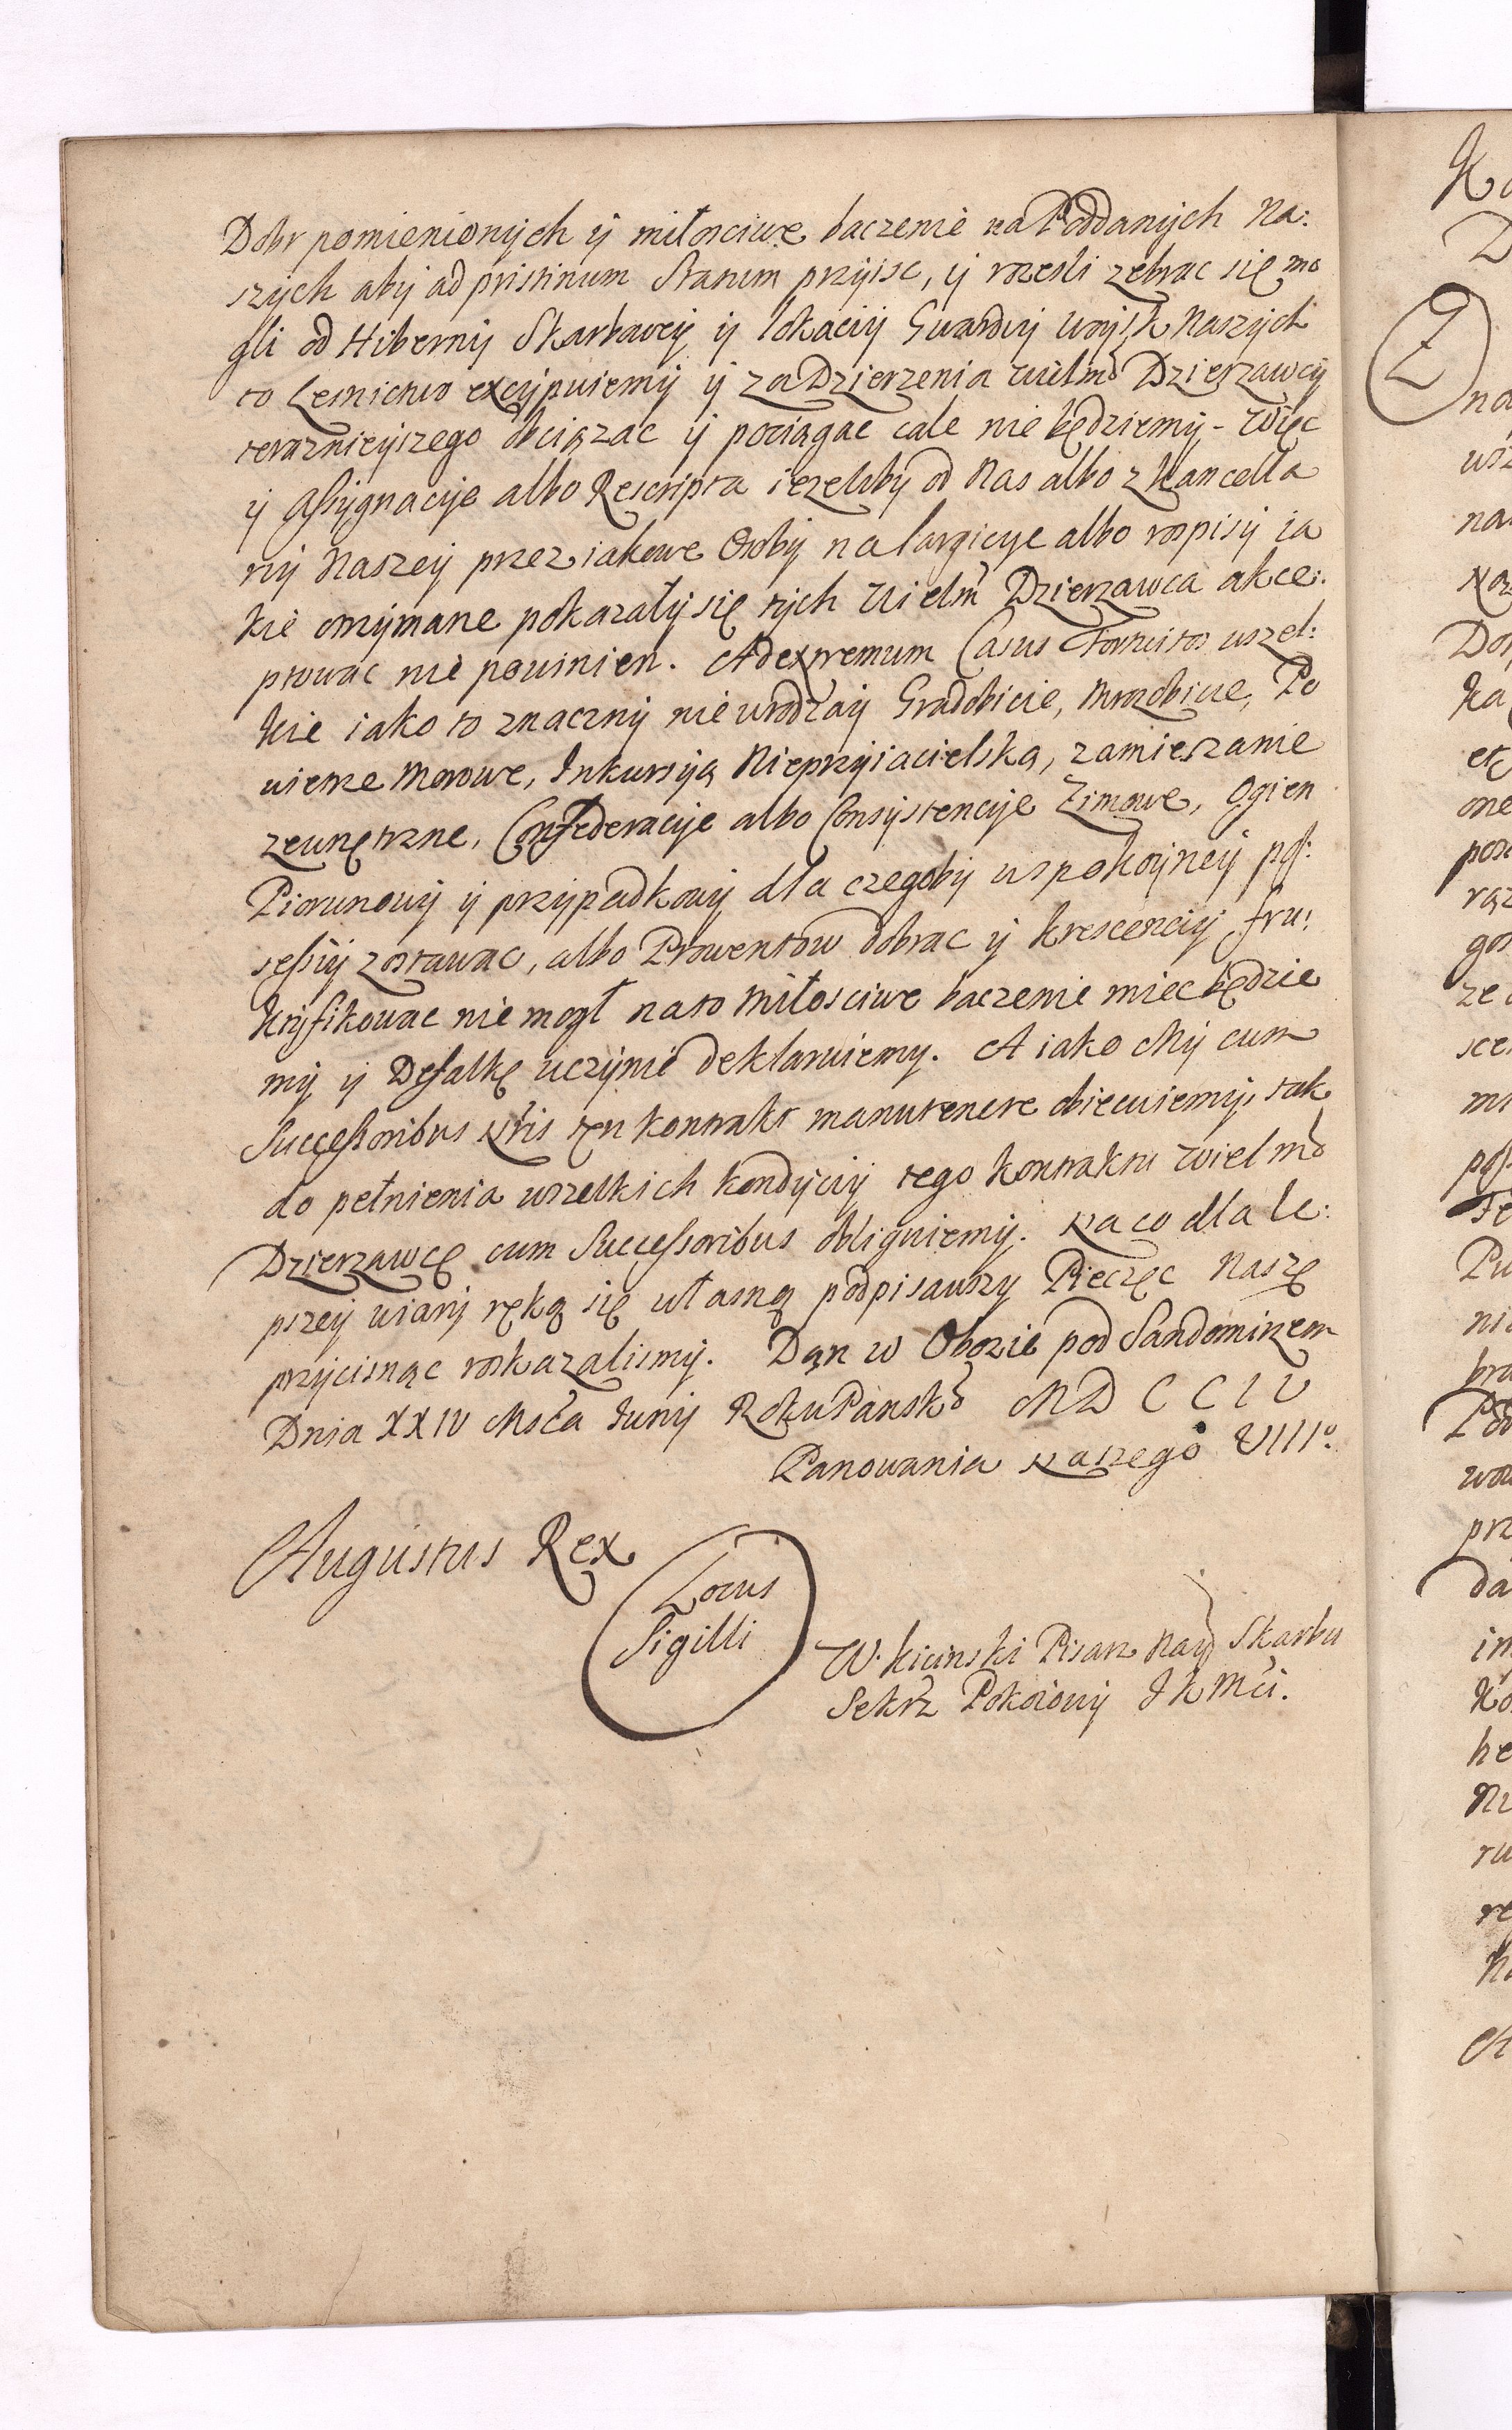 Dobr pomienionych y miłosciwe baczenie na Poddanych Na:
szych aby ad pristinum Statum przyisc, y rozesli zebrac się mo
gli od Hiberny Skarbowey y lokaciy Gwardiy woysk Naszych
to Lesnictwo excypuiemy y za Dzierzenia Wielmo Dzierzawcy
teraznieyszego obciązac y pociągac cale nie będziemy - Więc
y Assygnacye albo Rescripta iezeliby od Nas albo z Kancella
ryi Naszey przez iakowe Osoby na largicye albo rospisy ia
kie otrzymane pokazały się tych Wielm Dzierzawca akce:
ptowac nie powinien. Ad extremum Casus Fortuitos wszel:
kie iako to znaczny nieurodzay Gradobicie, Mrozobicie, Po
wietrze Morowe, Inkursyą Nieprzyiacielską, zamieszanie
zewnętrzne, Confederacye albo Consystencye Zimowe, Ogien
Piorunowy y przypadkowy dla czegoby w spokoyney pos:
sessiy zostawac, albo Prowentow dobrac y krescenciy fru:
ktyfikowac nie mogł na to Miłosciwe baczenie miec będzie
my y Defalkę uczynic deklaruiemy. A iako My cum
Successoribus Nris ten Kontrakt manutenere obiecuiemy, tak
do pełnienia wszelkich Kondyciy tego Kontraktu Wielmo
Dzierzawcę cum Successoribus obliguiemy. Na co dla le:
pszey wiary ręką się własną podpisawszy Pieczęc Naszę
przycisnąc roskazalismy. Dan w Obozie pod Sandomirzem
Dnia XXIV Msca Iuny Roku Pansko MDCCIV
Panowania Naszego VIIIo.
Augustus Rex
Locus
Sigilli
W. Kicinski Pisarz Nay Skarbu
Sekrz Pokoiowy J K Mci.